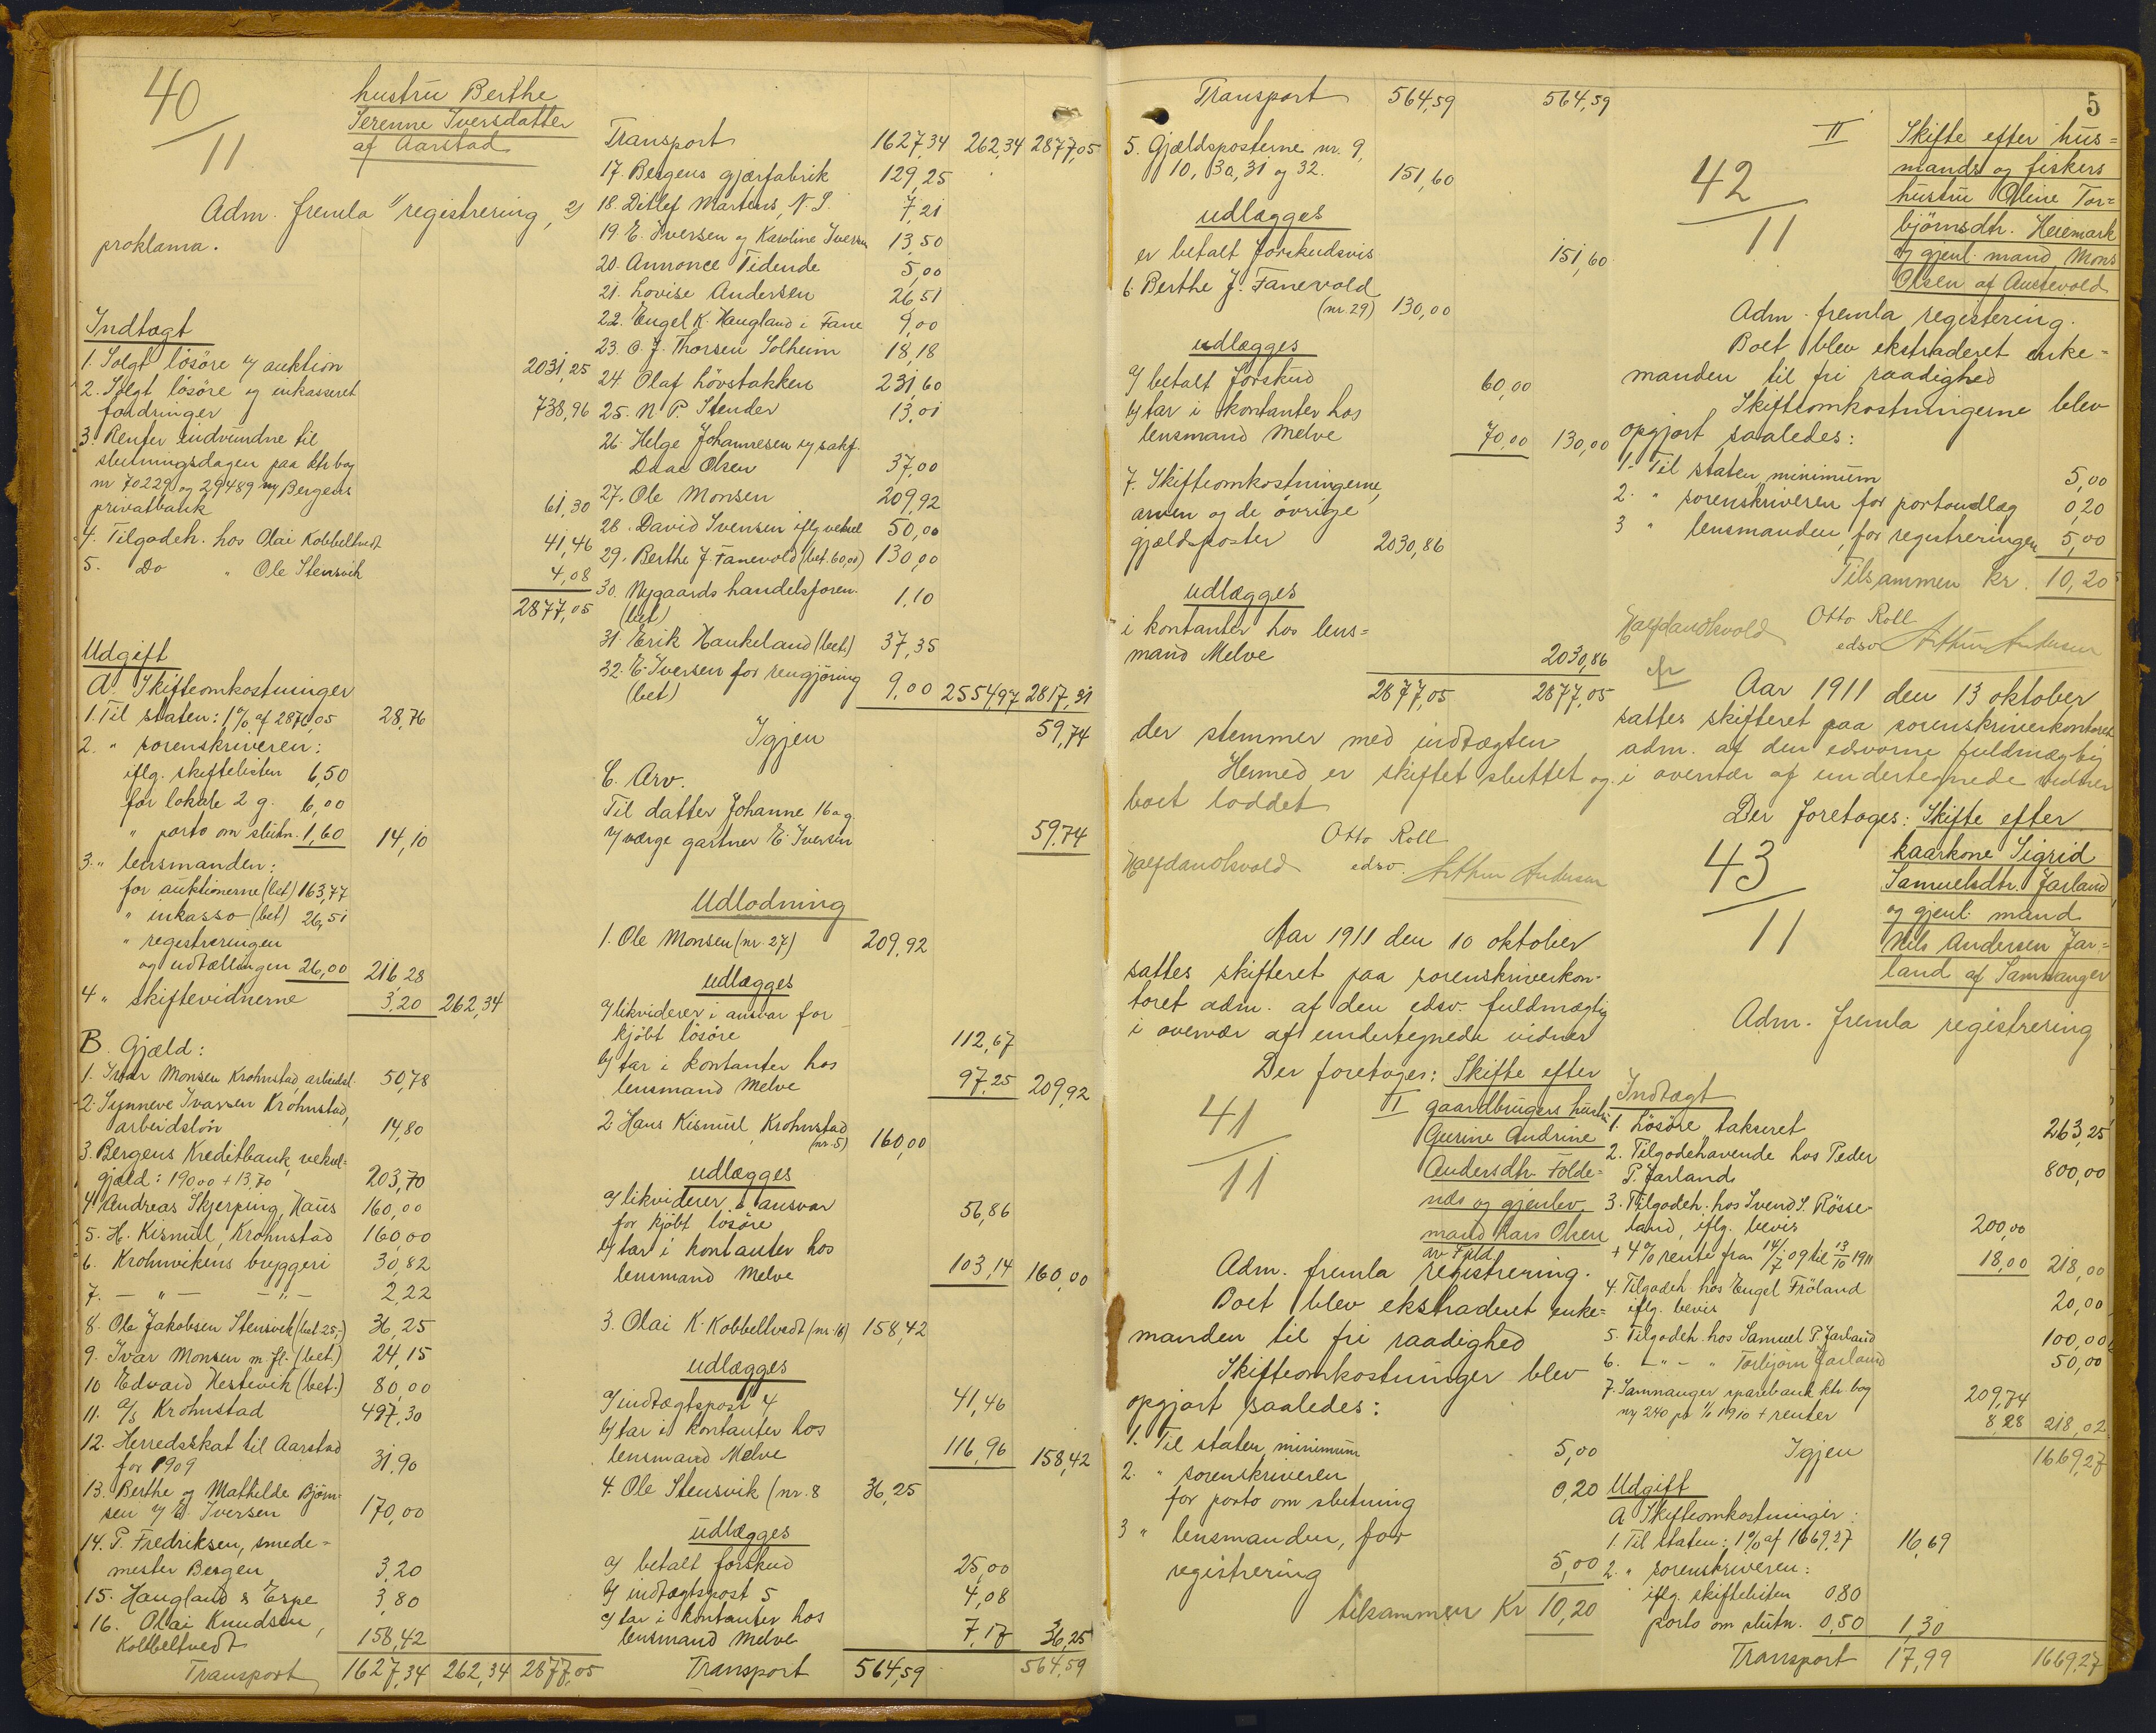 40
11
hustru Berthe
Serenne Iversdatter
af Aarstad
Adm. fremla 1/ registrering, 2/
proklama.
Indtægt
1. Solgt lösöre v/ auktion 2031,25
2. Solgt lösöre og inkasseret
fordringer 738,96
3. Renter indvundne til
slutningsdagen paa ktr bog
nr 70229 og 29489 av Bergens
privatbank 61,30
4. Tilgodeh. hos Olai Kobbeltvedt 41,46
5. Do " Ole Stensvik 4,08
2877,05
Udgift
A. Skifteomkostninger
1. Til staten: 1% af 2876,05 28,76
2. " sorenskriveren:
iflg. skiftelisten 6,50
for lokale 2 g. 6,00
" porto om slutn. 1,60 14,10
3. " lensmanden:
for auktionerne (bet) 163,77
" inkasso (bet) 26,51
" registreringen
og udtællingen 26,00 216,28
4 " skiftevidnerne 3,20 262,34
B. Gjæld:
1. Ivar Monsen Krohnstad, arbeidsl. 50,78
2. Synneve Ivarsen Krohnstad,
arbeidslön 14,80
3. Bergens Kreditbank, veksel-
gjæld: 190,00 + 13,70 203,70
4 Andreas Skjerping, Haus 160,00
5. H. Kismul, Krohnstad 160,00
6. Krohnvikens bryggeri 30,82
7. — " — — " — 2,22
8. Ole Jakobsen Stensvik (bet 25,-) 36,25
9. Ivar Monsen m. fl. (bet.) 24,15
10 Edvard Hestevik (bet.) 80,00
11. a/s Krohnstad 497,30
12. Herredsskat til Aarstad
for 1909 31,90
13. Berthe og Mathilde Björn-
sen v/ E. Iversen 170,00
14. P. Fredriksen, smede-
mester Bergen 3,20
15. Haugland & Espe 3,80
16. Olai Knudsen,
Kobbeltvedt 158,42
Transport 1627,34 262,34 2877,05
Transport 1627,34 262,34 2877,05
17. Bergens gjærfabrik 129,25
18. Ditlef Martens, N. S. 7,21
19. E. Iversen og Karoline Iversen 13,50
20. Annonce Tidende 5,00
21. Lovise Andersen 26,51
22. Engel K. Haugland i Fane 9,00
23. O. J. Thorsen Solheim 18,18
24. Olaf Lövstakken 231,60
25. N. P. Stender 13,01
26. Helge Johannesen v/ sakf.
Daae Olsen 37,00
27. Ole Monsen 209,92
28. David Svensen iflg veksel 50,00
29. Berthe J. Fanevold (bet. 60,00) 130,00
30. Nygaards handelsforen.
(bet) 1,10
31. Erik Haukeland (bet.) 37,35
32. E. Iversen for rengjøring
(bet) 9,00 2554,97 2817,31
Igjen 59,74
C. Arv.
Til datter Johanne 16 a g.
v/ værge gartner E. Iversen 59,74
Udlodning
1. Ole Monsen (nr. 27) 209,92
udlægges
a/ likviderer i ansvar for
kjöbt lösöre 112,67
b/ tar i kontanter hos
lensmand Melve 97,25 209,92
2. Hans Kismul, Krohnstad
(nr. 5) 160,00
udlægges
a/ likviderer i ansvar
for kjöbt lösöre 56,86
b/ tar i kontanter hos
lensmand Melve 103,14 160,00
3. Olai K. Kobbeltvedt (nr. 16) 158,42
udlægges
a/ indtægtspost 4 41,46
b/ tar i kontanter hos
lensmand Melve 116,96 158,42
4. Ole Stensvik (nr. 8 36,25
udlægges
a/ betalt forskud 25,00
b/ indtægtspost 5 4,08
c/ tar i kontanter hos
lensmand Melve 7,17 36,25
Transport 564,59 564,59
Transport 564,59 564,59
5. Gjældsposterne nr. 9,
10, 30, 31 og 32. 151,60
udlægges
er betalt forskudsvis 151,60
6. Berthe J. Fanevold
(nr. 29) 130,00
udlægges
a/ betalt forskud 60,00
b/ tar i kontanter hos
lensmand Melve 70,00 130,00
7. Skifteomkostningerne,
arven og de övrige
gjældsposter 2030,86
udlægges
i kontanter hos lens=
mand Melve 2030,86
2877,05 2877,05
der stemmer med indtægten
Hermed er skiftet sluttet og
boet loddet
Otto Roll
Halfdan Olsvold edsv. Arthur Andersen
Aar 1911 den 10 oktober
sattes skifteret paa sorenskriverkon-
toret adm. af den edsv. fuldmægtig
i overvær af undertegnede vidner
Der foretoges: Skifte efter
41
11
I gaardbrugers hustru
Gurine Andrine
Andersdtr. Folde=
næs og gjenlev.
mand Lars Olsen
av Fuld.
Adm. fremla registrering.
Boet blev ekstraderet enke=
manden til fri raadighed
Skifteomkostninger blev
opgjort saaledes:
1. Til staten minimum 5,00
2. " sorenskriveren
for porto om slutning 0,20
3 " lensmanden, for
registrering 5,00
tilsammen Kr 10,20
5
II
42
11
Skifte efter hus=
mands og fiskers
hustru Oline Tor=
björnsdtr. Heiemark
og gjenl. mand Mons
Olsen af Austevold
Adm. fremla registering.
Boet blev ekstraderet enke=
manden til fri raadighed
Skifteomkostningerne blev
opgjort saaledes:
1. Til staten minimum 5,00
2. " sorenskriveren for portoudlæg 0,20
3 " lensmanden, for registreringen 5,00
Tilsammen kr. 10,20
Otto Roll
Halfdan Olsvold edsv Arthur Andersen
Aar 1911 den 13 oktober
sattes skifteret paa sorenskriverkontoret
adm. af den edsvorne fuldmægtig
i overvær af undertegnede vidner
Der foretoges: Skifte efter
43
11
kaarkone Sigrid
Samuelsdtr. Jarland
og gjenl. mand
Nils Andersen Jar=
land af Samnanger
Adm. fremla registrering
Indtægt
1. Lösöre takseret 263,25
2. Tilgodehavende hos Peder
P. Jarland 800,00
3. Tilgodeh. hos Svend S. Rösse-
land, iflg. bevis 200,00
+ 4% rente fra 14/7 09 til 13/10 1911 18,00 218,00
4. Tilgodeh hos Engel Fröland
iflg. bevis 20,00
5. Tilgodeh. hos Samuel P. Jarland 100,00
6. — " — " Torbjörn Jarland 50,00
7. Samnanger sparebank ktr. bog 209,74
nr 240 pr 1/1 1910 + renter 8,28 218,02
Igjen 1669,27
Udgift
A Skifteomkostninger:
1. Til staten: 1% af 1669,27 16,69
2. " sorenskriveren:
iflg. skiftelisten 0,80
porto om slutn. 0,50 1,30
Transport 17,99 1669,27